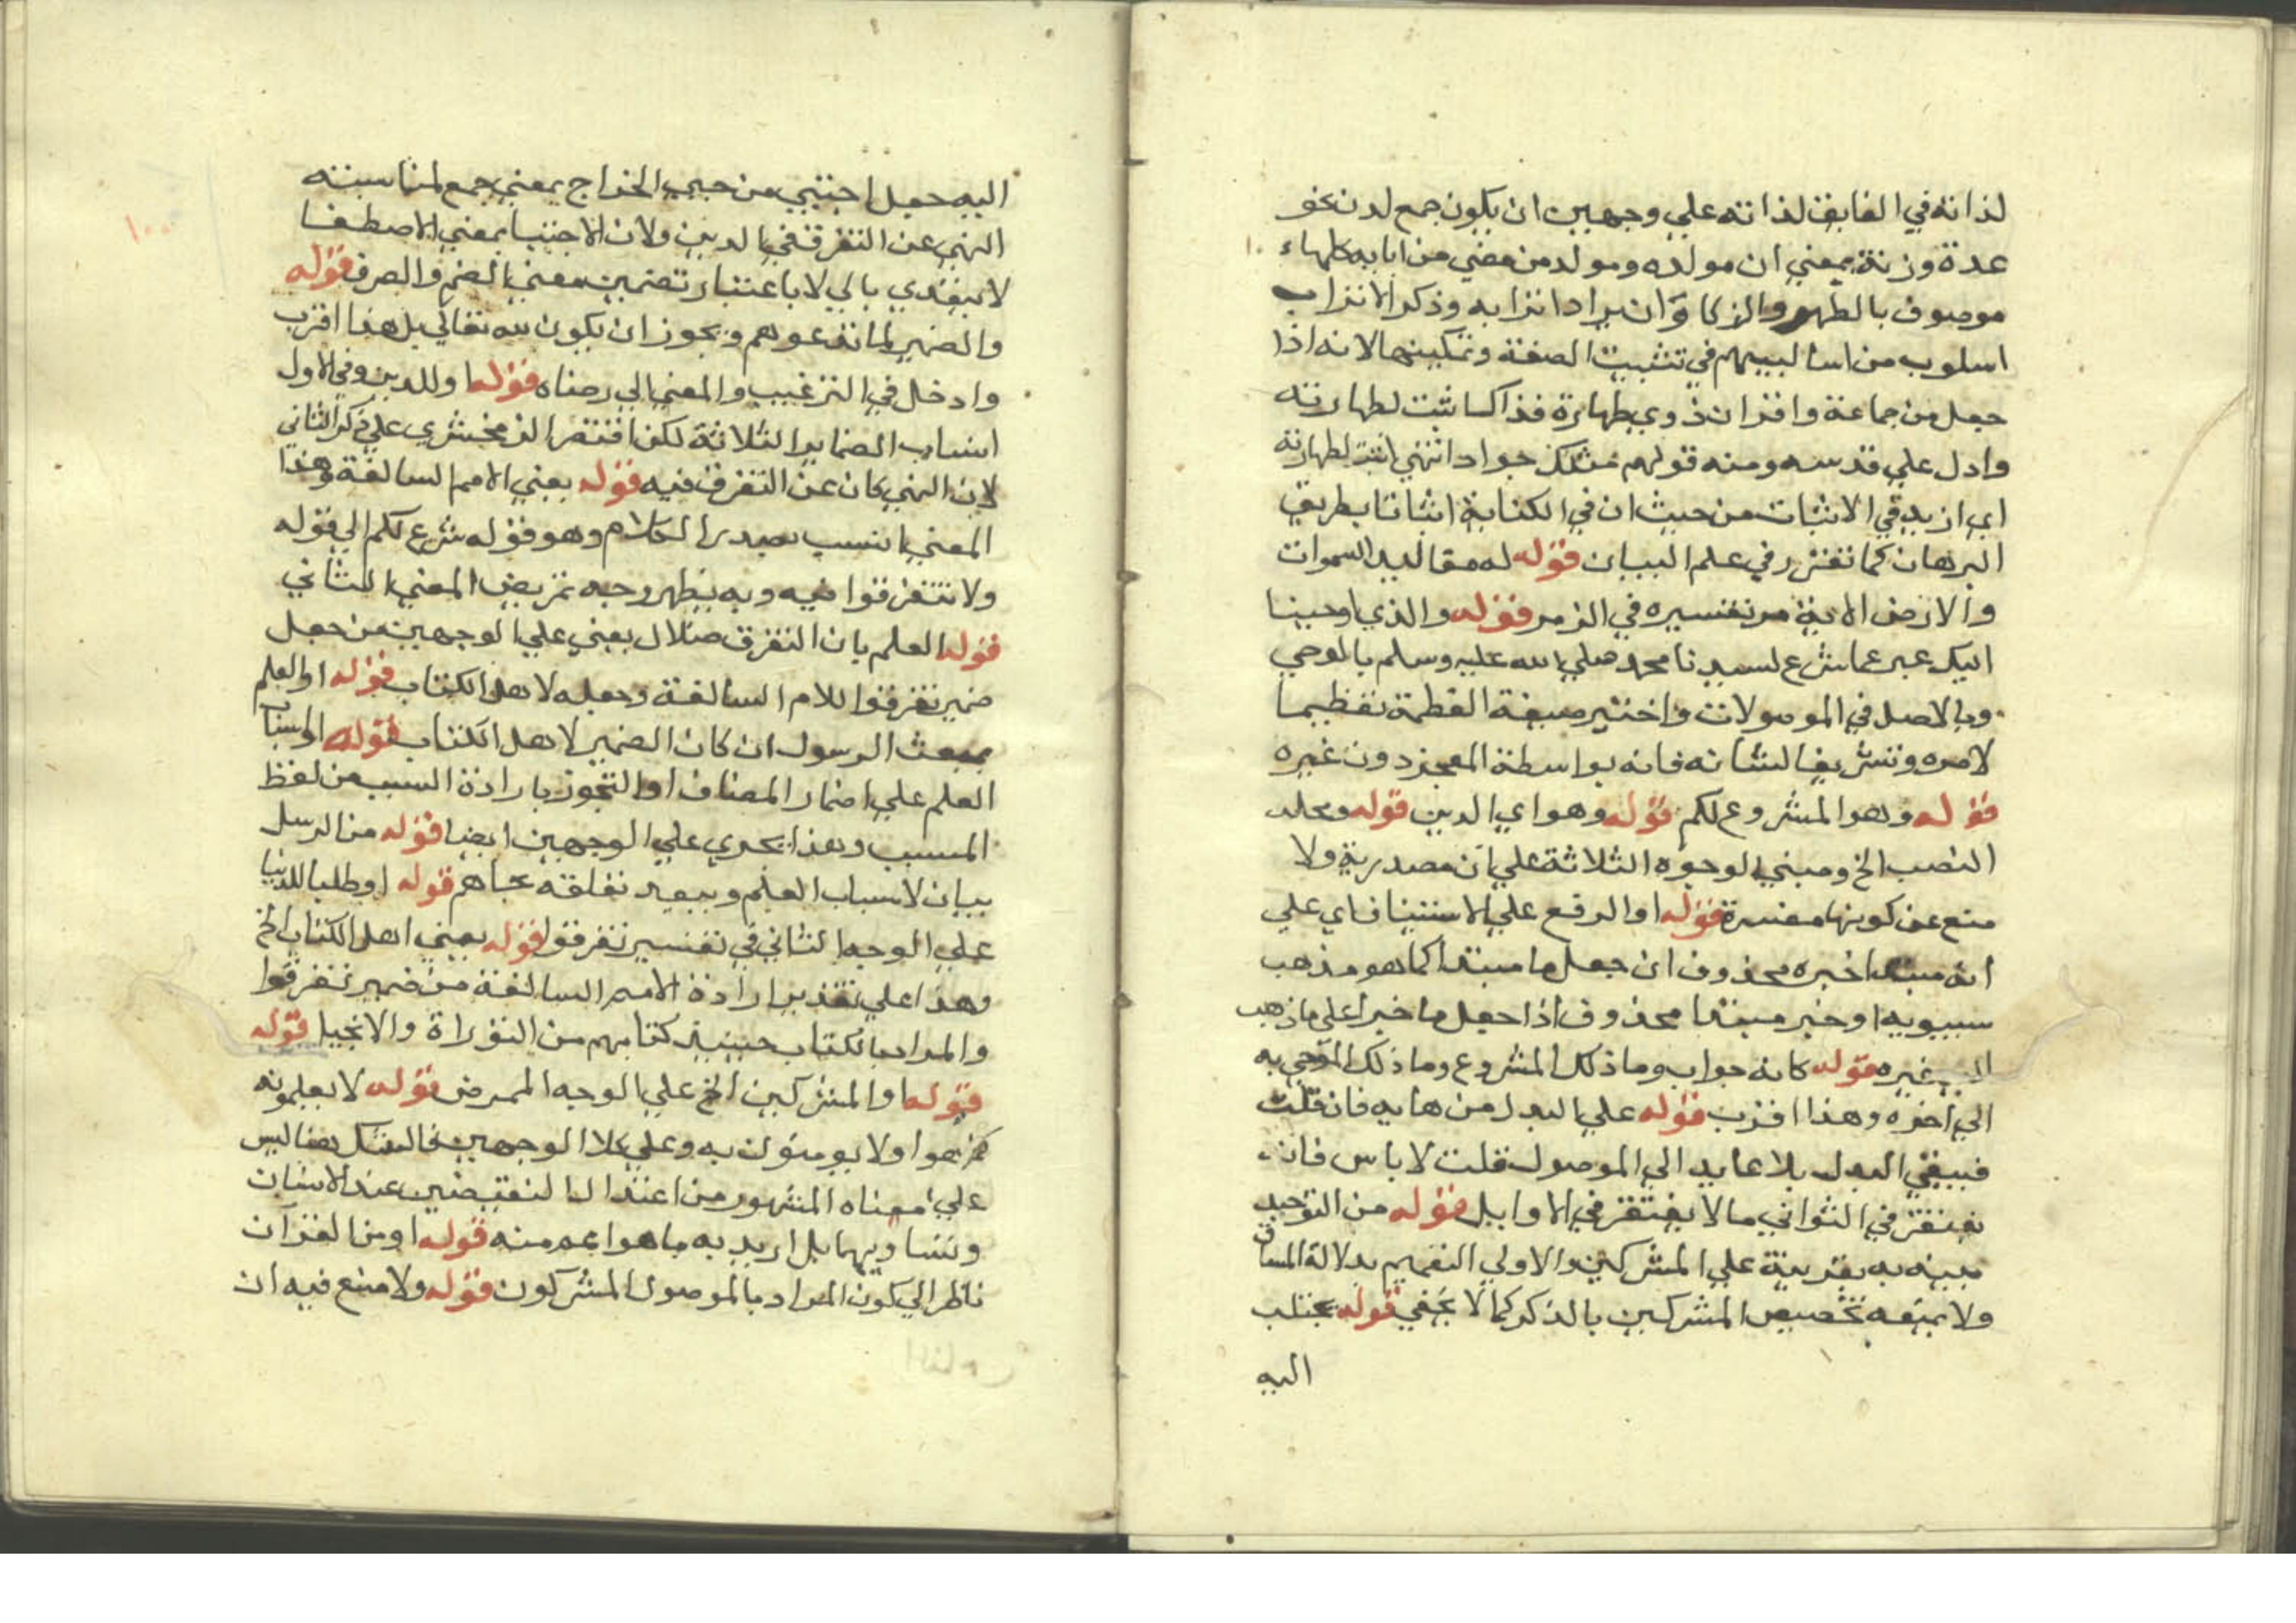 لذاته في الفايق لذاته علي وجهين ان يكون جمع لدة نحو
عدة وزنة بمعني ان مولده ومولد من مضي من ابايه كلها
موصوف بالطهر والزكا وان يراد اترابه وذكر الاتراب
اسلوب من اساليبهم في تثبيت الصفة وتمكينها لانه اذا
جعل من جماعة واقران ذوي طهارة فذاك اثبت لطهارته
وادل علي قدسه ومنه قولهم مثلك جواد انتهي اثبت لطهارته
اي ازيد في الاثبات من حيث ان في الكناية اثباتا بطريق
البرهان كما تقرر في علم البيان قوله له مقاليد السموات
والارض الاية مر تفسيره في الزمر قوله والذي اوحينا
اليك عبر عما شرع لسيدنا محمد صلي الله عليه وسلم بالموحي
وبالاصل في الموصولات واختير صيغة العظمة تعظيما
لامره وتشريفا لشانه فانه بواسطة المعجز دون غيره
قوله وهو المشروع لكم قوله وهو اي الدين قوله ومحله
النصب الخ ومبني الوجوه الثلاثة علي ان مصدرية ولا
منع عن كونها مفسرة قوله او الرفع علي الاستيناف اي علي
انه مبتدا خبره محذوف ان جعل ما مبتدا كما هو مذهب
سيبويه او خبر مبتدا محذوف اذا جعل ما خبرا علي ما ذهب
اليه غيره قوله كانه جواب وما ذلك المشروع وما ذلك الموحي به
الي اخره وهذا اقرب قوله علي البدل من هابه فان قلت
فيبقي البدل بلا عايد الي الموصول قلت لا باس فانه
يغتفر في الثواني ما لا يغتفر في الاوايل قوله من التوحيد
بينه به بقرينة علي المشركين والاولي التعميم بدلالة المساق
ولا يمنعه تخصيص المشركين بالذكر كما لا يخفي قوله يجتلب
اليه
اليه جعل اجتبي من جبي الخراج بمعني جمع لمناسبته
النهي عن التفرقة في الدين ولان الاجتبا بمعني الاصطفا
لا يتعدي بالي لا باعتبار تضمين معني الضم والصرف قوله
والضمير لما تدعوهم ويجوز ان يكون لله تعالي بل هذا اقرب
وادخل في الترغيب والمعني الي رضاه قوله او للدين وفي الاول
اتساب الضماير الثلاثة لكن اقتصر الزمخشري علي ذكر الثاني
لان النهي كان عن التفرق فيه قوله يعني الامم السالفة وهذا
المعني انسب بصدر الكلام وهو قوله شرع لكم الي قوله
ولا تتفرقوا فيه وبه يظهر وجه تمريض المعني الثاني
قوله العلم بان التفرق ضلال يعني علي الوجهين من جعل
ضمير تفرقوا للامم السالفة وجعله لاهل الكتاب قوله او العلم
بمبعث الرسول ان كان الضمير لاهل الكتاب قوله او اسباب
العلم علي اضمار المضاف او التجوز بارادة السبب من لفظ
المسبب وهذا يجري علي الوجهين ايضا قوله من الرسل
بيان لاسباب العلم ويبعد تعلقه بجاهم قوله او طلبا للدنيا
علي الوجه الثاني في تفسير تفرقوا قوله يعني اهل الكتاب الخ
وهذا علي تقدير ارادة الامم السالفة من ضمير تفرقوا
والمراد بالكتاب حينيذ كتابهم من التوراة والانجيل قوله
قوله او المشركين الخ علي الوجه الممرض قوله لا يعلمونه
كما هو او لا يومنون به وعلي كلا الوجهين فالشك هنا ليس
علي معناه المشهور من اعتدال النقيضين عند الانسان
وتساويهما بل اريد به ما هو اعم منه قوله او من القرآن
ناظر الي كون المراد بالموصول المشركون قوله ولا منع فيه ان